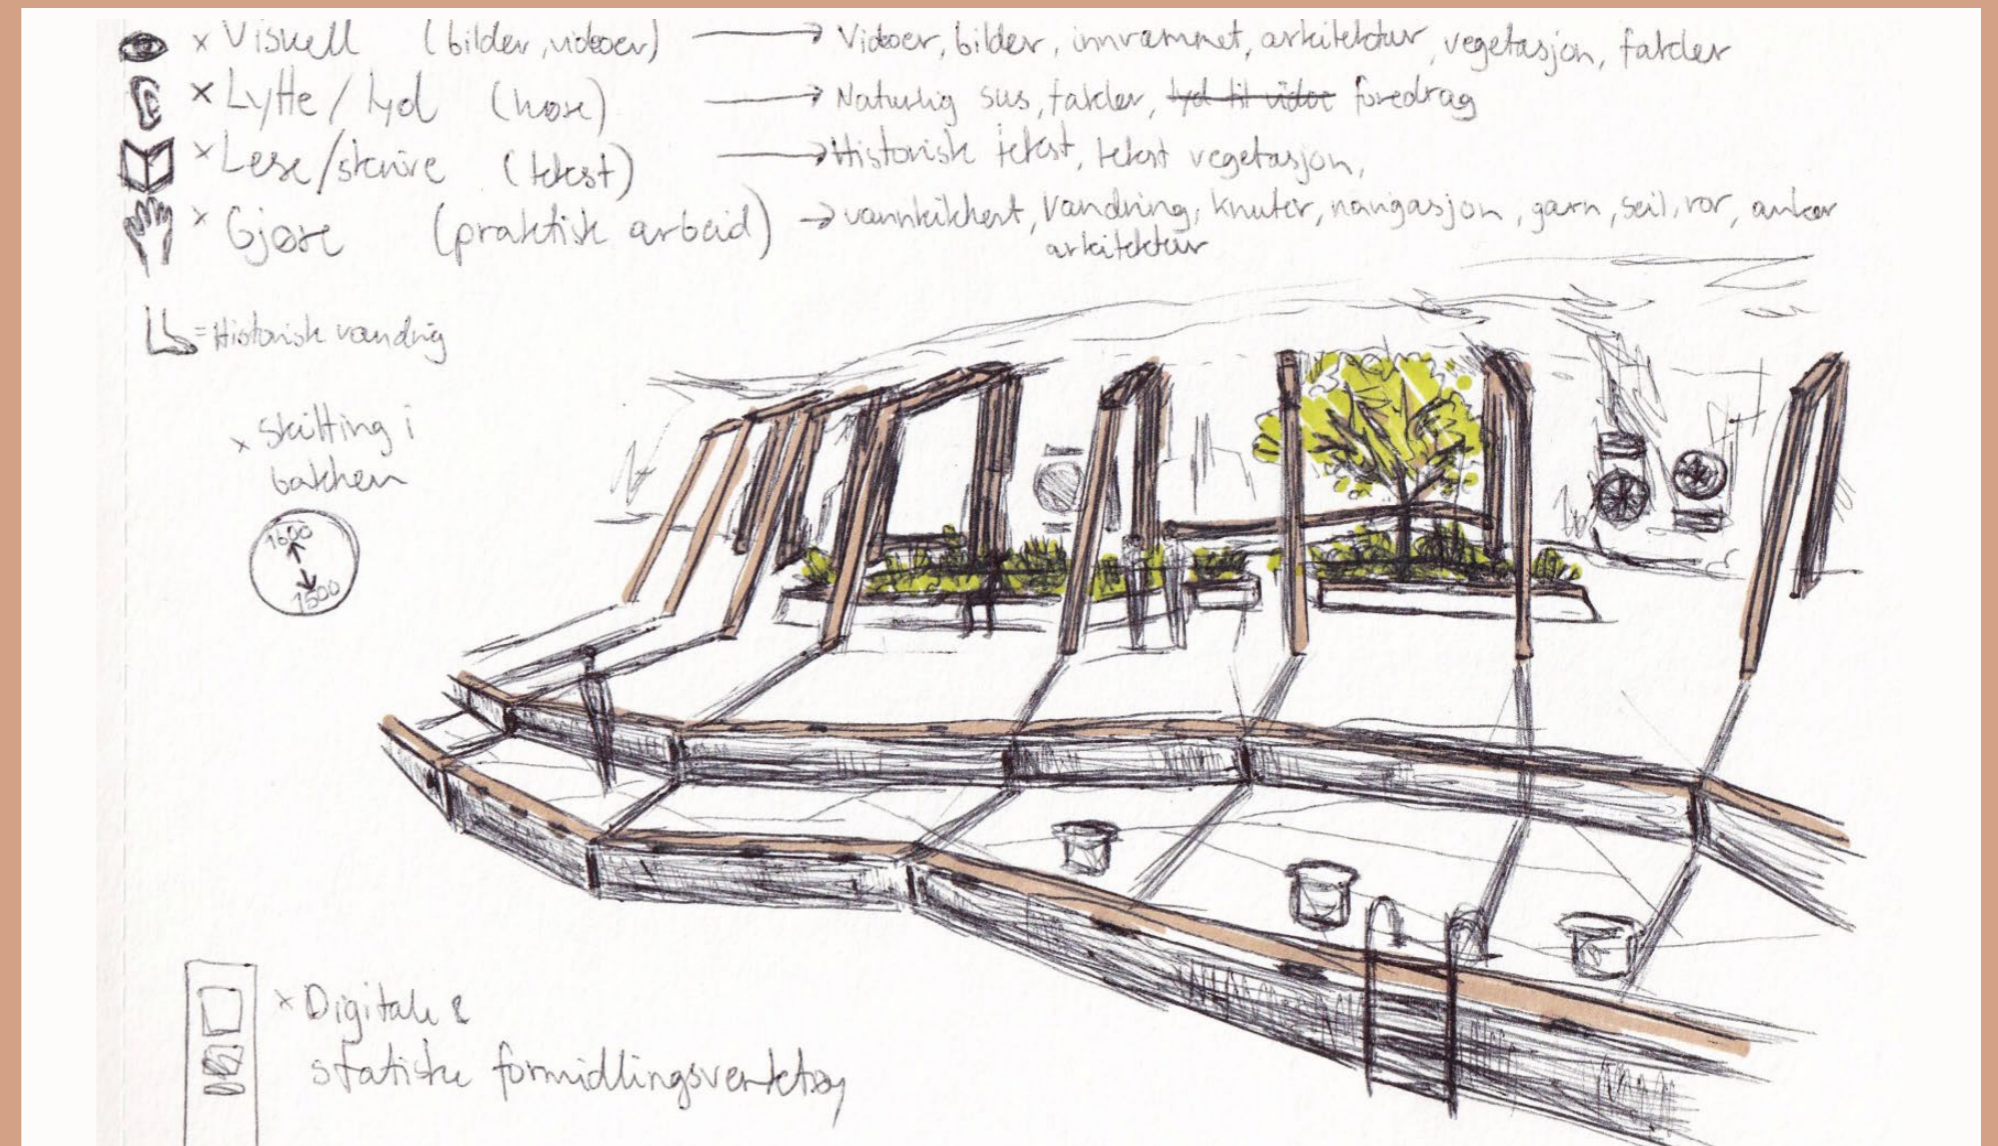 x Visuell (bilder, videoer) → Videoer, bilder, innrammet, arkitektur, vegetasjon, fakler
x Lytte/lyd (høre) → Naturlig sus, fakler, lyd til video foredrag
x Lese/skrive (tekst) → Historisk tekst, tekst vegetasjon,
x Gjøre (praktisk arbeid) → vannkikkert, Vandring, knuter, navigasjon, garn, seil, ror, anker
arkitektur
= Historisk vandrig
x Skilting i
bakken
1600
1500
x Digitale &
statiske formidlingsverktøy